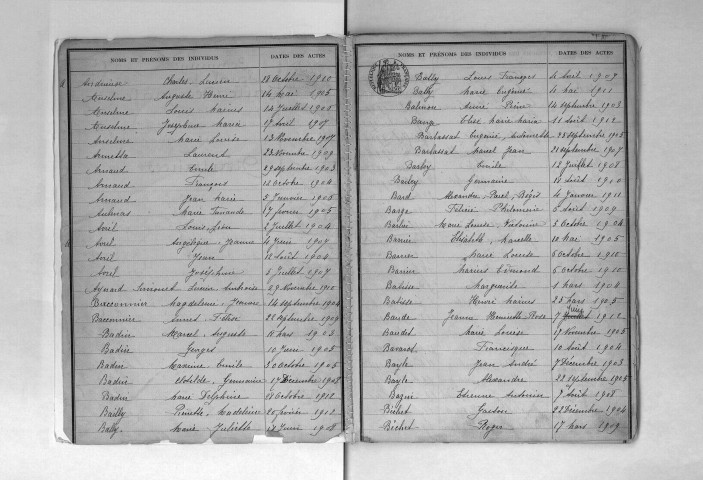 NOMS ET PRÉNOMS DES INDIVIDUS DATES DES ACTES
Charles Lucien 18 Octobre 1900
Anselme Auguste Henri 14 Mai 1905
Anselme Louis Marius 14 Juillet 1905
Anselme Joséphine Marie 17 Avril 1907
Anselme Marie Louise 13 Novembre 1907
Laurent 23 Novembre 1909
Arnaud Emile 29 Septembre 1903
Arnaud François 12 Octobre 1904
Arnaud Jean Marie 3 Janvier 1905
Marie Fernande 17 Février 1905
Avril Louis Léon 2 Juillet 1904
Avril Angélique Jeanne 4 Juin 1907
Avril Jean 12 Août 1904
Avril Joséphine 6 Juillet 1907
Aynard Lucien Ambroise 29 Novembre 1910
Bacconnier Magdeleine Jeanne 14 Septembre 1904
Bacconnier 22 Septembre 1909
Badin Marcel Auguste 18 Mars 1903
Badin Georges 10 Juin 1905
Badin Maxime Emile 30 Octobre 1905
Badin Clotilde Germaine 17 Décembre 1908
Badin Marie Delphine 18 Octobre 1912
Bailly Pierrette Madeleine 20 Février 1912
Bally Marie Juliette Juin 1908
NOMS ET PRÉNOMS DES INDIVIDUS DATES DES ACTES
Bally Louis François 4 Avril 1909
Bally Marie Eugénie 4 Mai 1911
14 Septembre 1903
Elise Marie Maria 11 Août 1912
Barbassat Eugénie Antoinette 28 Septembre 1905
Barbassat Marcel Jean 21 Septembre 1907
Barbey Emile 12 Juillet 1908
Barbey Germaine 18 Août 1900
Bard Alexandre, Paul, Régis 4 Janvier 1911
Barge Félicie Philomène 5 Août 1909
Marie Louise, Victorine 3 Octobre 1904
Barnier Elisabeth, Marcelle 10 Mai 1905
Marie Louise 6 Octobre 1910
Barnier Marius Edmond 6 Octobre 1910
Batisse Marguerite 1 Mars 1904
Batisse Henri Marius 25 Mars 1905
Baude Jeanne Henriette Rose 7 Juin 1912
Baudet Marie Louise 19 Novembre 1905
Bavarot Francisque 10 Août 1904
Bayle Jean André 7 Décembre 1903
Bayle Alexandre 22 Septembre 1905
Etienne Antonin 7 Août 1908
Béchet Gaston 22 Décembre 1904
Béchet Roger 17 Mars 1909